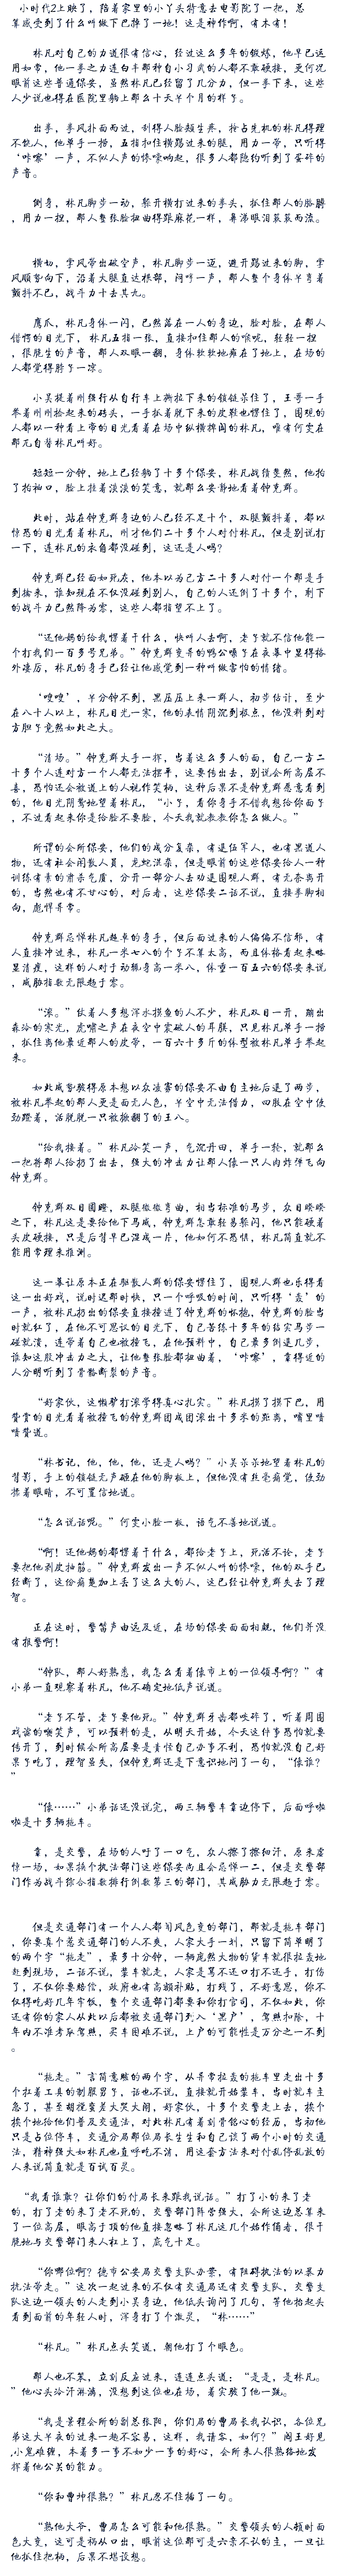 小时代2上映了，陪着家里的小丫头特意去电影院了一把，总
算感受到了什么叫做下巴掉了一地！这是神作啊，有木有！
林凡对自己的力道很有信心，经过这么多年的锻炼，他早已运
用如常，他一拳之力连白羊那种自小习武的人都不敢硬接，更何况
眼前这些普通保安，虽然林凡已经留了几分力，但一拳下来，这些
人少说也得在医院里躺上那么十天半个月的样子。
出拳，拳风扑面而过，刮得人脸颊生疼，抢占先机的林凡得理
不饶人，他单手一捞，五指扣住横踢过来的腿，用力一带，只听得
‘咔嚓’一声，不似人声的惨嚎响起，很多人都隐约听到了蛋碎的
声音。
侧身，林凡脚步一动，躲开横打过来的拳头，抓住那人的胳膊
，用力一捏，那人整张脸扭曲得跟麻花一样，鼻涕眼泪哀哀而流。
横切，掌风带出破空声，林凡脚步一迈，避开踢过来的脚，掌
风顺势向下，沿着大腿直达根部，闷哼一声，那人整个身体半弯着
颤抖不已，战斗力十去其九。
鹰爪，林凡身体一闪，已然落在一人的身边，脸对脸，在那人
错愕的目光下，林凡五指一张，直接扣住那人的喉咙，轻轻一捏
，很脆生的声音，那人双眼一翻，身体软软地瘫在了地上，在场的
人都觉得脖子一凉。
小吴提着刚强行从自行车上撕拉下来的锁链呆住了，王哥一手
举着刚刚捡起来的砖头，一手抓着脱下来的皮鞋也愣住了，围观的
人都以一种看上帝的目光看着在场中纵横捭阖的林凡，唯有何雯在
那兀自替林凡叫好。
短短一分钟，地上已经躺了十多个保安，林凡战绩斐然，他拍
了拍袖口，脸上挂着淡淡的笑意，就那么安静地看着钟克群。
此时，站在钟克群身边的人已经不足十个，双腿颤抖着，都以
惊恐的目光看着林凡，刚才他们二十多个人对付林凡，但是别说打
一下，连林凡的衣角都没碰到，这还是人吗？
钟克群已经面如死灰，他本以为己方二十多人对付一个那是手
到擒来，谁知现在不仅没碰到别人，自己的人还倒了十多个，剩下
的战斗力已然降为零，这些人都指望不上了。
“还他妈的给我愣着干什么，快叫人去啊，老子就不信他能一
个打我们一百多号兄弟。”钟克群变异的鸭公嗓子在夜幕中显得格
外凄厉，林凡的身手已经让他感觉到一种叫做害怕的情绪。
‘嗖嗖’，半分钟不到，黑压压上来一群人，初步估计，至少
在八十人以上，林凡目光一寒，他的表情阴沉到极点，他没料到对
方胆子竟然如此之大。
“清场。”钟克群大手一挥，当着这么多人的面，自己一方二
十多个人连对方一个人都无法摆平，这要传出去，别说会所高层不
喜，恐怕还会被道上的人视作笑柄，这种后果不是钟克群愿意看到
的，他目光阴鸷地望着林凡，“小子，看你身手不错我想给你面子
，不过看起来你是给脸不要脸，今天我就教教你怎么做人。”
所谓的会所保安，他们的成分复杂，有退伍军人，也有黑道人
物，还有社会闲散人员，龙蛇混杂，但是眼前的这些保安给人一种
训练有素的肃杀气质，分开一部分人去劝退围观人群，有无奈离开
的，当然也有不甘心的，对后者，这些保安二话不说，直接拳脚相
向，彪悍异常。
钟克群忌惮林凡超卓的身手，但后面过来的人偏偏不信邪，有
人直接冲过来，林凡一米七八的个子不算太高，而且体格看起来略
显清瘦，这样的人对于动辄身高一米八，体重一百五六的保安来说
，威胁指数无限趋于零。
“滚。”仗着人多想浑水摸鱼的人不少，林凡双目一开，蹦出
森冷的寒光，虎啸之声在夜空中震破人的耳膜，只见林凡单手一捞
，抓住离他最近那人的皮带，一百六十多斤的体型被林凡单手举起
来。
如此威势骇得原本想以众凌寡的保安不由自主地后退了两步，
被林凡举起的那人更是面无人色，半空中无法借力，四肢在空中使
劲蹬着，活脱脱一只被掀翻了的王八。
“给我接着。”林凡冷笑一声，气沉丹田，单手一轮，就那么
一把将那人给扔了出去，强大的冲击力让那人像一只人肉炸弹飞向
钟克群。
钟克群双目圆瞪，双腿微微弯曲，相当标准的马步，众目睽睽
之下，林凡这是要给他下马威，钟克群怎敢轻易躲闪，他只能硬着
头皮硬接，只是后背早已湿成一片，他如何不恐惧，林凡简直就不
能用常理来推测。
这一幕让原本正在驱散人群的保安愣住了，围观人群也乐得看
这一出好戏，说时迟那时快，只一个呼吸的时间，只听得‘轰’的
一声，被林凡扔出的保安直接撞进了钟克群的怀抱，钟克群的脸当
时就红了，在他不可思议的目光下，自己苦练十多年的给实马步一
碰就溃，连带着自己也被撞飞，在他预料中，自己最多倒退几步，
谁知这股冲击力之大，让他整张脸都扭曲着，‘咔嚓’，靠得近的
人分明听到了骨骼断裂的声音。
“好家伙，这懒驴打滚学得真心扎实。”林凡摸了摸下巴，用
赞赏的目光看着被撞飞的钟克群团成团滚出十多米的距离，嘴里啧
啧赞道。
“林书记，他，他，他，还是人吗？”小吴呆呆地望着林凡的
背影，手上的锁链无声砸在他的脚板上，但他没有丝毫痛觉，使劲
揉着眼睛，不可置信地道。
“怎么说话呢。”何雯小脸一板，语气不善地说道。
“啊！还他妈的都愣着干什么，都给老子上，死活不论，老子
要把他剥皮抽筋。”钟克群发出一声不似人叫的惨嚎，他的双手已
经断了，这份痛楚加上丢了这么大的人，这已经让钟克群失去了理
智。
正在这时，警笛声由远及近，在场的保安面面相觑，他们并没
有报警啊！
“钟队，那人好熟悉，我怎么看着像市上的一位领导啊？”有
小弟一直观察着林凡，他不确定地低声说道。
“老子不管，老子要他死。”钟克群牙齿都咬碎了，听着周围
戏谑的嘲笑声，可以预料的是，从明天开始，今天这件事恐怕就要
传开了，到时候会所高层要是责怪自己办事不利，恐怕就没自己好
果子吃了，理智虽失，但钟克群还是下意识地问了一句，“像谁？
”
“像……”小弟话还没说完，两三辆警车靠边停下，后面呼啦
啦是十多辆拖车。
靠，是交警，在场的人吁了一口气，众人擦了擦细汗，原来虚
惊一场，如果换个执法部门这些保安尚且会忌惮一二，但是交警部
门作为战斗综合指数排行倒数第三的部门，其威胁力无限趋于零。
但是交通部门有一个人人都闻风色变的部门，那就是拖车部门
，你要真个惹交通部门的人不爽，人家大手一划，只留下简单明了
的两个字“拖走”，最多十分钟，一辆庞然大物的货车就很拉轰地
赶到现场，二话不说，架车就走，人家是骂不还口打不还手，打伤
了，不仅你要赔偿，政府也有高额补贴，打残了，不好意思，你不
仅得吃好几年牢饭，整个交通部门都要和你打官司，不仅如此，你
还有你的家人从此以后都被交通部门列入‘黑户’，驾照扣除，十
年内不准考取驾照，买车困难不说，上户的可能性是万分之一不到
。
“拖走。”言简意赅的两个字，从异常拉轰的拖车里走出十多
个拉着工具的制服男子，话也不说，直接就开始架车，当时就车主
急了，甚至胡搅蛮差大哭大闹，好家伙，十多个交警走上去，挨个
挨个地给他们普及交通法，对此林凡有着刻骨铭心的经历，当初他
只是占位停车，交通分局那位局长生生和自己谈了两个小时的交通
法，精神强大如林凡也直呼吃不消，用这套方法来对付乱停乱放的
人来说简直就是百试百灵。
“我看谁敢？让你们的付局长来跟我说话。”打了小的来了老
的，打了老的来了老不死的，交警部门阵营强大，会所这边总算来
了一位高层，眼高于顶的他直接忽略了林凡这几个始作俑者，很干
脆地与交警部门来人杠上了，底气十足。
“你哪位啊？德市公安局交警支队办案，有阻碍执法的以暴力
抗法带走。”这次一起过来的不仅有交通局还有交警支队，交警支
队这边一领头的人走到小吴身边，他低头询问了几句，等他抬起头
看到面前的年轻人时，浑身打了个激灵，“林……”
“林凡。”林凡点头笑道，朝他打了个眼色。
那人也不笨，立刻反应过来，连连点头道：“是是，是林凡。
”他心头冷汗淋漓，没想到这位也在场，着实骇了他一跳。
“我是景程会所的副总张阳，你们局的曹局长我认识，各位兄
弟这大半夜的过来一趟不容易，这样，我请客，如何？”阎王好见
,小鬼难缠，本着多一事不如少一事的好心，会所来人很熟络地发
挥着他公关的能力。
“你和曹坤很熟？”林凡忍不住插了一句。
“熟他大爷，曹局怎么可能和他很熟。”交警领头的人顿时面
色大变，这可是祸从口出，眼前这位那可是六亲不认的主，一旦让
他抓住把柄，后果不堪设想。